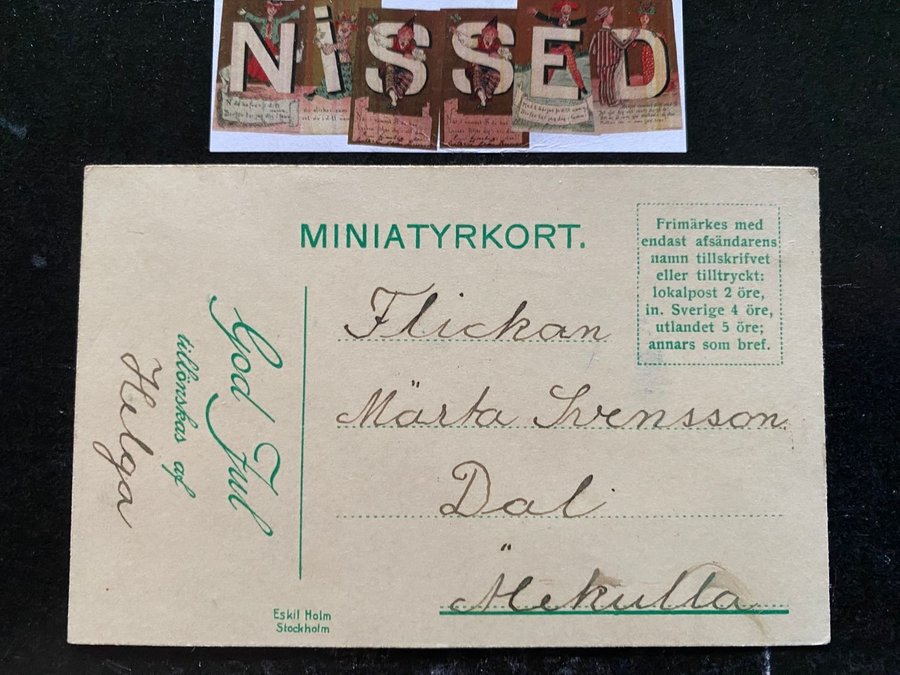 NISSED
MINIATYRKORT.
Frimärkes med
endast afsändarens
namn tillskrifvet
eller tilltryckt:
lokalpost 2 öre,
in. Sverige 4 öre,
utlandet 5 öre;
annars som bref.
Flickan
Märta Svensson
Dal
God Jul
tillönskas af
Helga
Eskil Holm
Stockholm